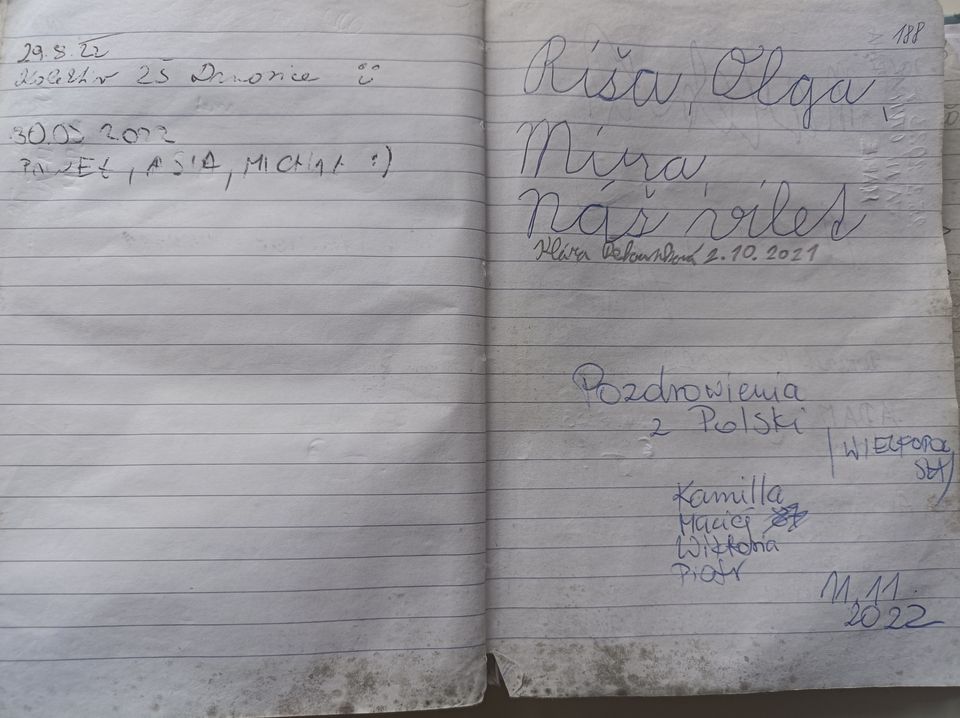 29.8.22
Kolektiv ZŠ Drnovice
30.05 2022
PAWEŁ, ASIA, MICHAŁ :)
188
Ríša, Olga,
Míra,
Náš výlet
Klára 2.10.2021
Pozdrowienia
z Polski
(WIELKOPOL
SKA)
Kamilla
Maciej
Wiktoria
Piotr
11.11.
2022